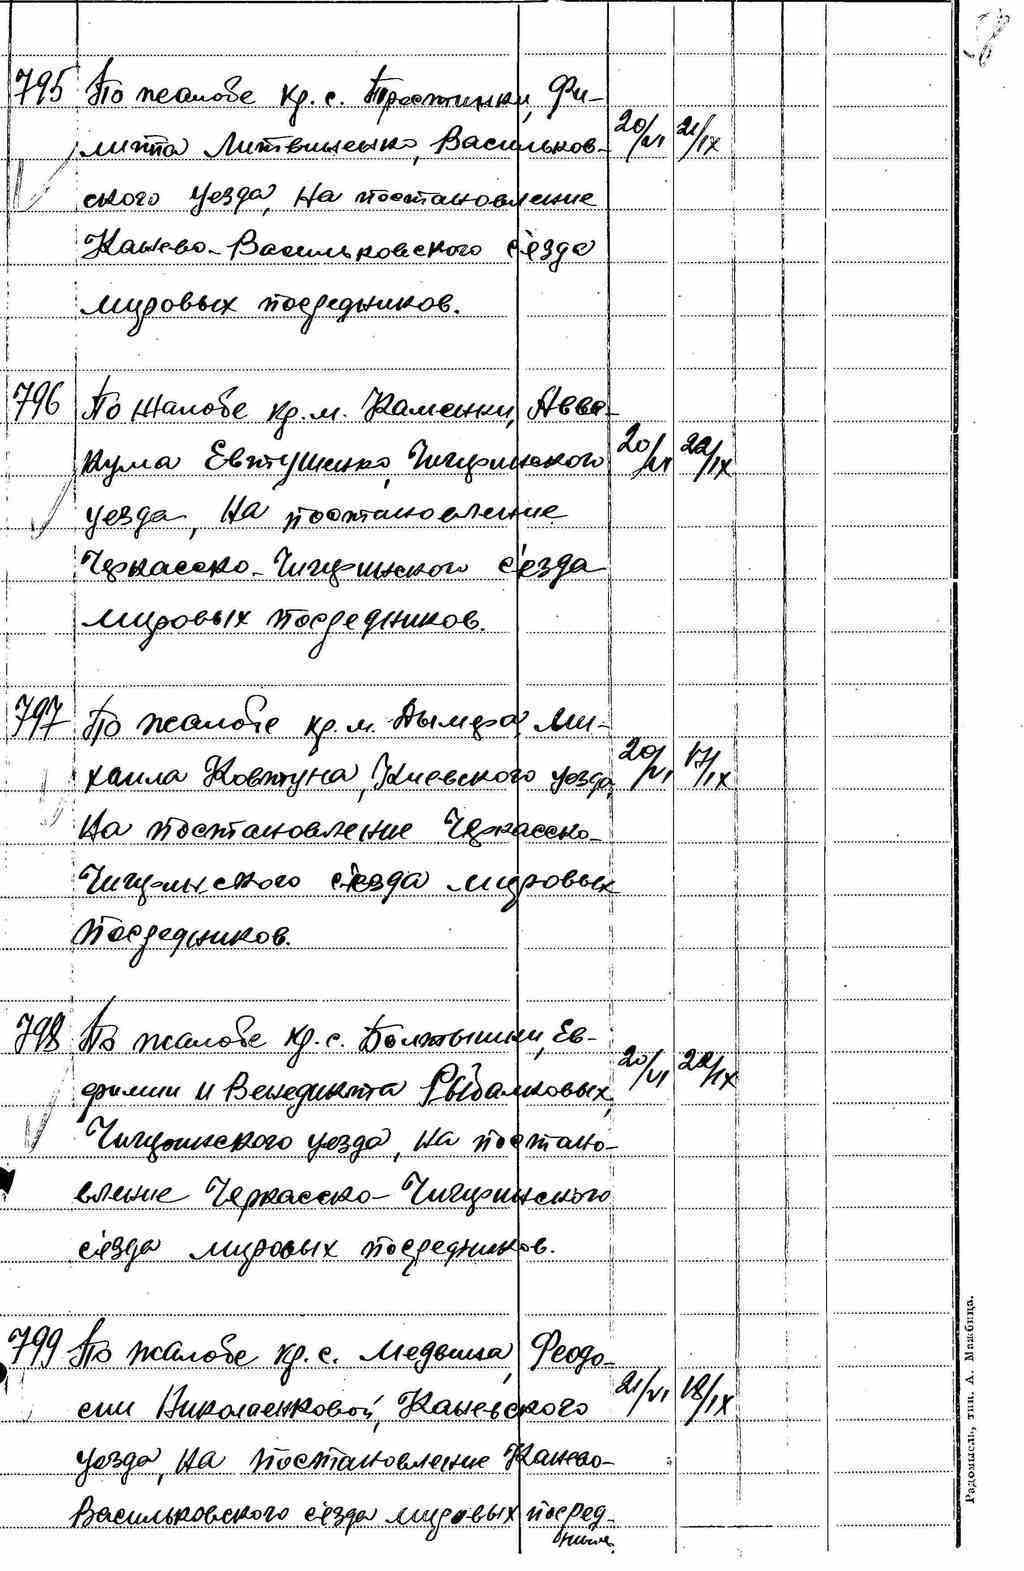 795 По жалобе кр. с. Тростинки, Фи-
липпа Литвиненко, Васильков- 20/VI 21/IX
ского уезда, на постановление
Канево-Васильковского с'езда
мировых посредников.
796 По жалобе кр. м. Каменки, Авва-
кума Евтушенко, Чигиринского 20/VI 22/IX
уезда, на постановление
Черкасско-Чигиринского с'езда
мировых посредников.
797 По жалобе кр. м. Дымера, Ми-
хаила Ковтуна, Киевского уезда, 20/VI 17/IX
на постановление Черкасско-
Чигиринского с'езда мировых
посредников.
798 По жалобе кр. с. Болтышки, Ев-
фимии и Венедикта Рыбалковых, 20/VI 22/IX
Чигиринского уезда, на постано-
вление Черкасско-Чигиринского
с'езда мировых посредников.
799 По жалобе кр. с. Медвина, Феодо-
сии Николаенковой, Каневского 21/VI 18/IX
уезда, на постановление Канево-
Васильковского с'езда мировых посред-
ников.
Радомысль, тип. А. Мажбица.